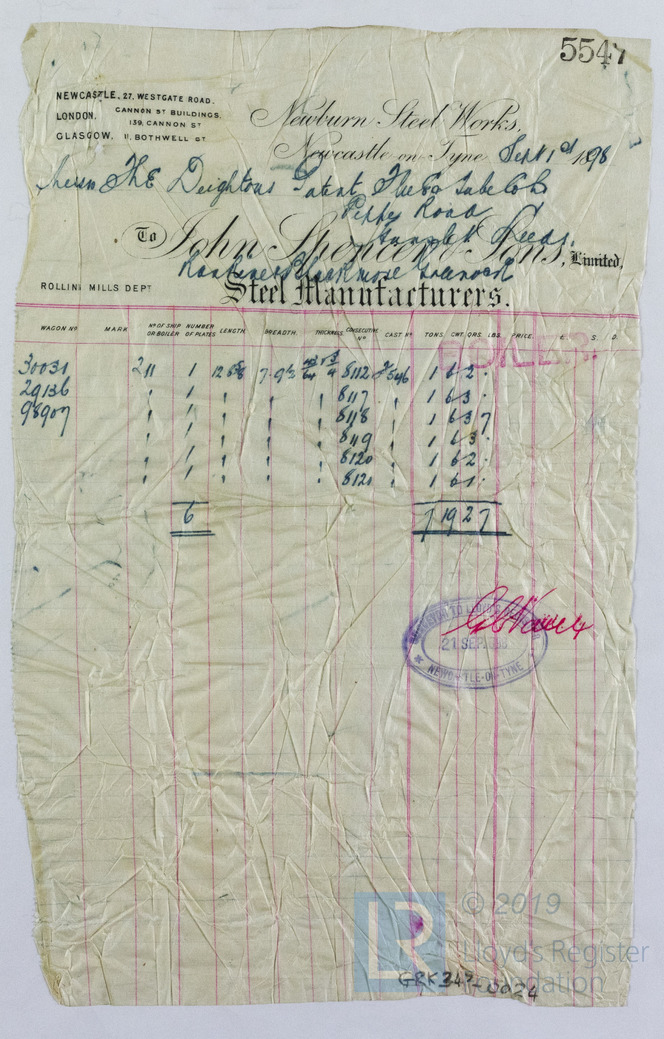 5547
NEWCASTLE, 27, WESTGATE ROAD.
LONDON, CANNON ST BUILDINGS, 139, CANNON ST
GLASGOW, 11, BOTHWELL ST
Newburn Steel Works,
Newcastle on Tyne, Sept 1st 1898
Messrs The Deightons Patent Flue & Tube Co Ld
Pepper Road
Hunslet Leeds.
To John Spencer & Sons, Limited,
Rankine & Blackmore Greenock
ROLLING MILLS DEPT Steel Manufacturers.
WAGON No MARK No OF SHIP OR BOILER NUMBER OF PLATES LENGTH. BREADTH. THICKNESS. CONSECUTIVE No CAST No TONS. CWT. QRS. LBS. PRICE. £ S. D.
BOILER
30031 211 1 8112 1 6 2 .
29136 " " " " " 8117 " 1 6 3 .
98907 " " " " " 8118 " 1 6 3 7
" " " " " 8119 " 1 6 3 .
" " " " " 8120 " 1 6 2 .
" " " " " 8121 " 1 6 1 .
6 7 19 2 7
SURVEYOR TO LLOYD'S
21 SEP
NEWCASTLE-ON-TYNE
© 2019
Lloyd's Register
Foundation
GRK347-0024